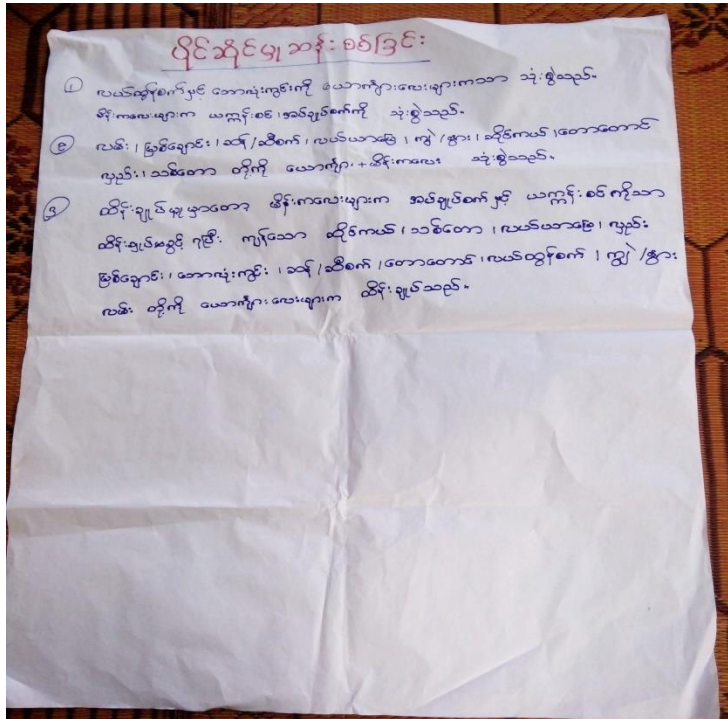 ပိုင်ဆိုင်မှု ဆန်းစစ်ခြင်း
① လယ်ထွန်စက်နှင့် ဘောလုံးကွင်းကို ယောကျ်ားလေးများကသာ သုံးစွဲသည်။
မိန်းကလေးများက ယက္ကန်းစင်၊ အပ်ချုပ်စက်ကို သုံးစွဲသည်။
② လမ်း၊ မြစ်ချောင်း၊ ဆန်/ဆီစက်၊ လယ်ယာမြေ၊ ကျွဲ/နွား၊ ဆိုင်ကယ်၊ တောတောင်
လှည်း၊ သစ်တော တို့ကို ယောကျ်ား+မိန်းကလေး သုံးစွဲသည်။
③ ထိန်းချုပ်မှုမှာတော့ မိန်းကလေးများက အပ်ချုပ်စက်နှင့် ယက္ကန်းစင်ကိုသာ
ထိန်းချုပ်ခွင့် ရပြီး ကျန်သော ဆိုင်ကယ်၊ သစ်တော၊ လယ်ယာမြေ၊ လှည်း
မြစ်ချောင်း၊ ဘောလုံးကွင်း၊ ဆန်/ဆီစက်၊ တောတောင်၊ လယ်ထွန်စက်၊ ကျွဲ/နွား
လမ်း တို့ကို ယောကျ်ားလေးများက ထိန်းချုပ်သည်။